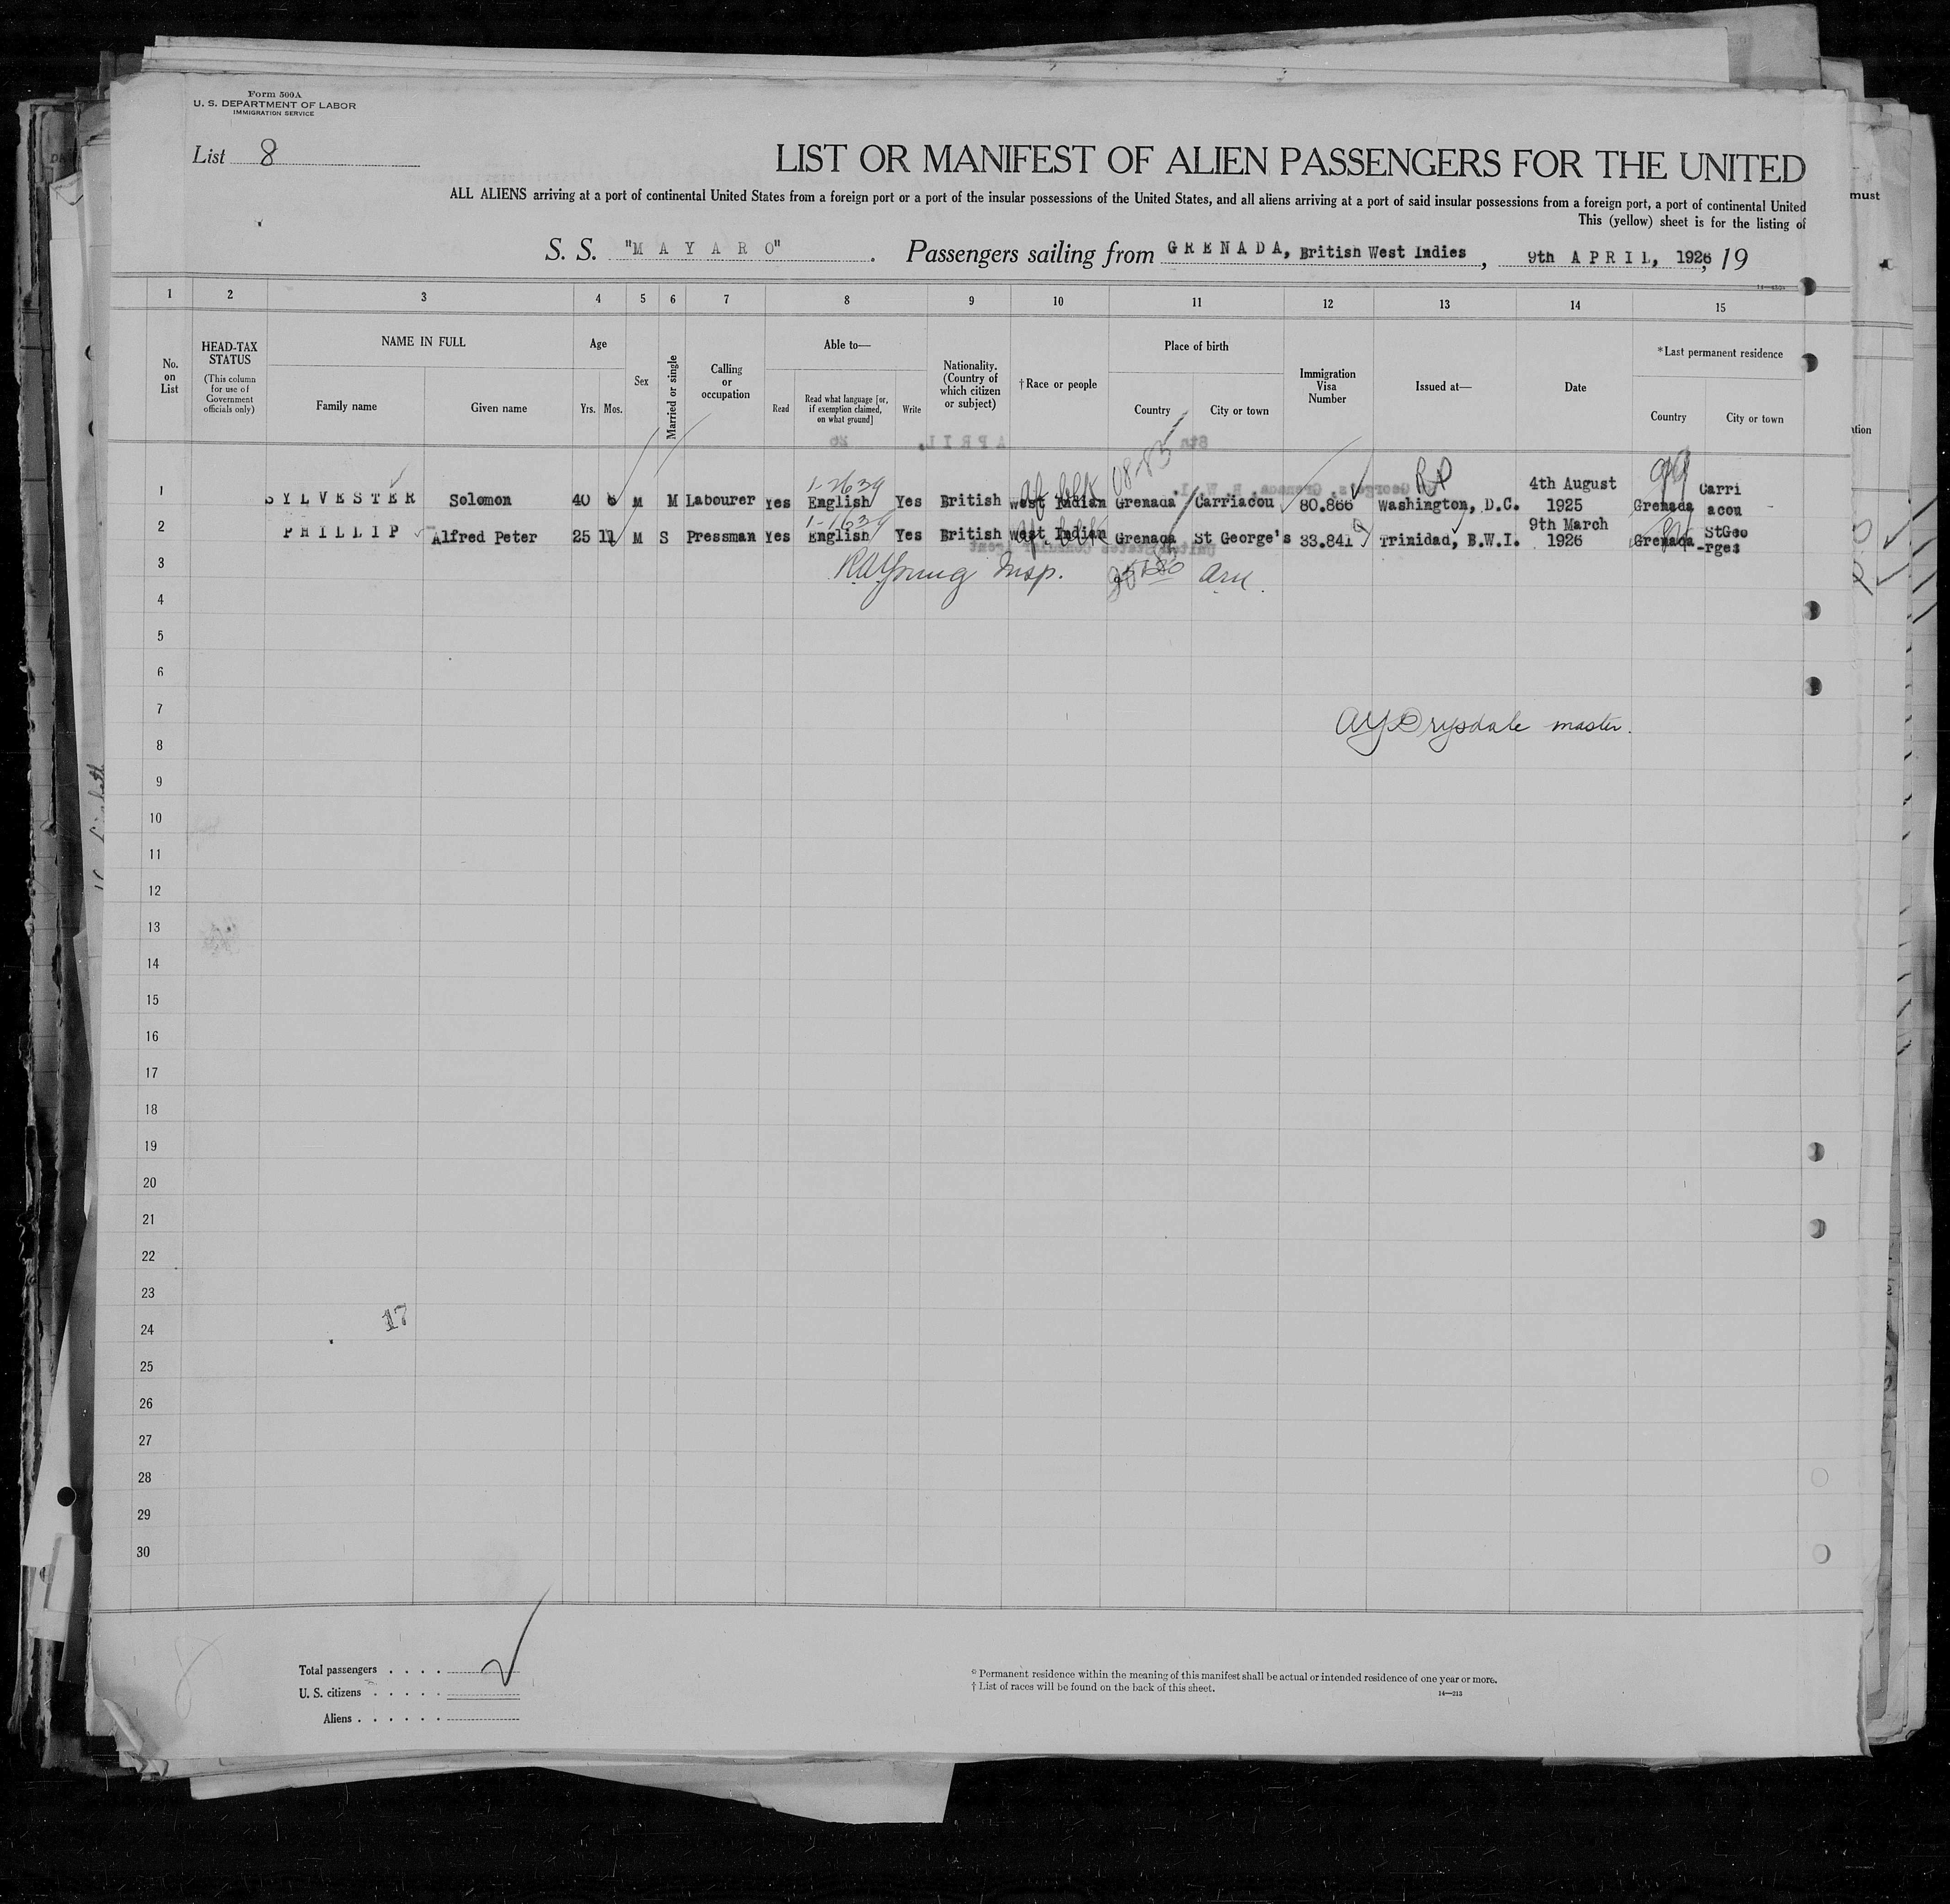 Form 500A
U. S. DEPARTMENT OF LABOR
IMMIGRATION SERVICE
List 8
LIST OR MANIFEST OF ALIEN PASSENGERS FOR THE UNITED
ALL ALIENS arriving at a port of continental United States from a foreign port or a port of the insular possessions of the United States, and all aliens arriving at a port of said insular possessions from a foreign port, a port of continental United
must
This (yellow) sheet is for the listing of
S. S. "M A Y A R O" . Passengers sailing from G R E N A D A, British West Indies , 9th A P R I L, 1926, 19
1 2 3 4 5 6 7 8 9 10 11 12 13 14 15
No. on List
HEAD-TAX STATUS
(This column for use of Government officials only)
NAME IN FULL
Family name
Given name
Age
Yrs. Mos.
Sex
Married or single
Calling or occupation
Able to—
Read
Read what language [or, if exemption claimed, on what ground]
Write
Nationality. (Country of which citizen or subject)
†Race or people
Place of birth
Country
City or town
Immigration Visa Number
Issued at—
Date
*Last permanent residence
Country
City or town
1 SYLVESTER Solomon 40 6 M M Labourer Yes English Yes British West Indian Grenada Carriacou 80.866 Washington, D.C. 4th August 1925 Grenada Carriacou
af blk
08-83
2 PHILLIP Alfred Peter 25 11 M S Pressman Yes English Yes British West Indian Grenada St George's 33.841 Trinidad, B.W.I. 9th March 1926 Grenada StGeo-rges
af. blk
3
RAYoung Insp.
4
5
6
7
master.
8
9
10
11
12
13
14
15
16
17
18
19
20
21
22
23
17
24
25
26
27
28
29
30
Total passengers . . . .
U. S. citizens . . . . .
Aliens . . . . . .
* Permanent residence within the meaning of this manifest shall be actual or intended residence of one year or more.
† List of races will be found on the back of this sheet.
14—213